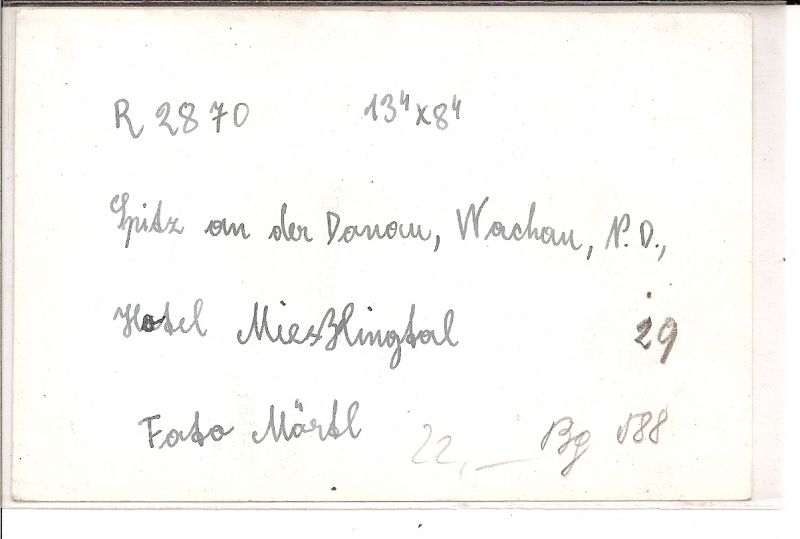 R 2870 13⁴x8⁴
Spitz an der Donau, Wachau, N.Ö.,
Hotel Mießlingtal
29
Foto Märtl 22,— Bg 588